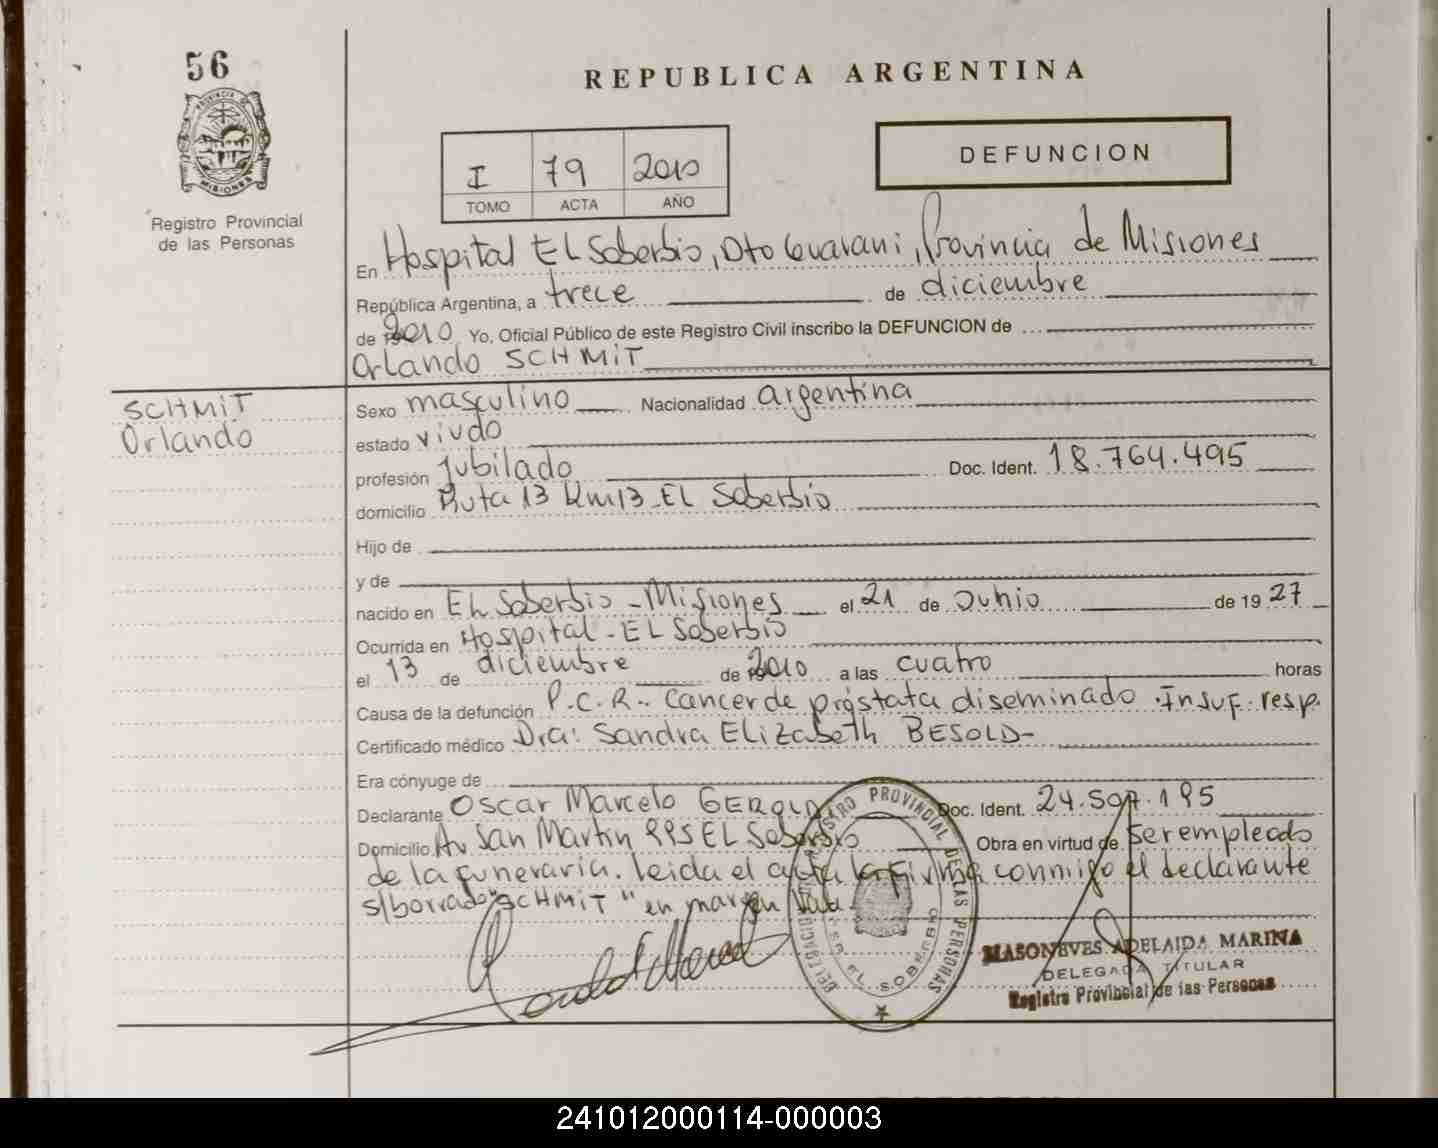 56
PROVINCIA DE
MISIONES
Registro Provincial
de las Personas
REPUBLICA ARGENTINA
I 79 2010
TOMO ACTA AÑO
DEFUNCION
En Hospital El Soberbio, Dto Guarani, Provincia de Misiones
República Argentina, a trece de diciembre
de 2010 Yo, Oficial Público de este Registro Civil inscribo la DEFUNCION de
Orlando SCHMIT
SCHMIT
Orlando
Sexo masculino Nacionalidad argentina
estado viudo
profesión Jubilado Doc. Ident. 18.764.495
domicilio Ruta 13 Km13 - EL Soberbio
Hijo de
y de
nacido en EL Soberbio - Misiones el 21 de Junio de 1927
Ocurrida en Hospital - EL Soberbio
el 13 de diciembre de 2010 a las cuatro horas
Causa de la defunción P.C.R. - Cancer de próstata diseminado . Insuf. resp.
Certificado médico Dra: Sandra Elizabeth BESOLD-
Era cónyuge de
Declarante Oscar Marcelo GEROLD Doc. Ident. 24.507.195
Domicilio Av San Martin PPS EL Soberbio Obra en virtud de ser empleado
de la funeraria. leida el acta la firma conmigo el declarante
s/borrado "SCHMIT" en margen Vale
REGISTRO PROVINCIAL DE LAS PERSONAS
DELEGACION
EL SOBERBIO
MASONEVES ADELAIDA MARINA
DELEGADA TITULAR
Registro Provincial de las Personas
241012000114-000003